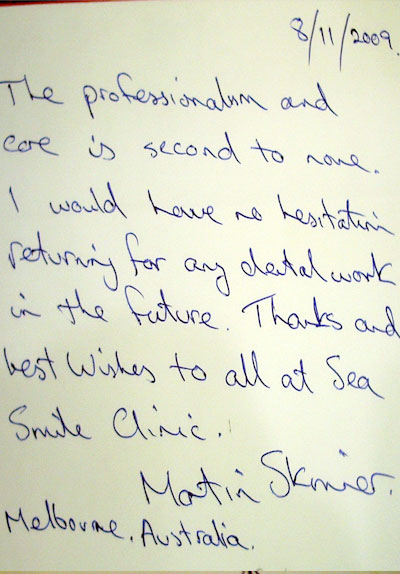 8/11/2009.
The professionalism and
care is second to none.
I would have no hesitation
returning for any dental work
in the future. Thanks and
best Wishes to all at Sea
Smile Clinic.
Martin Skinner.
Melbourne. Australia.